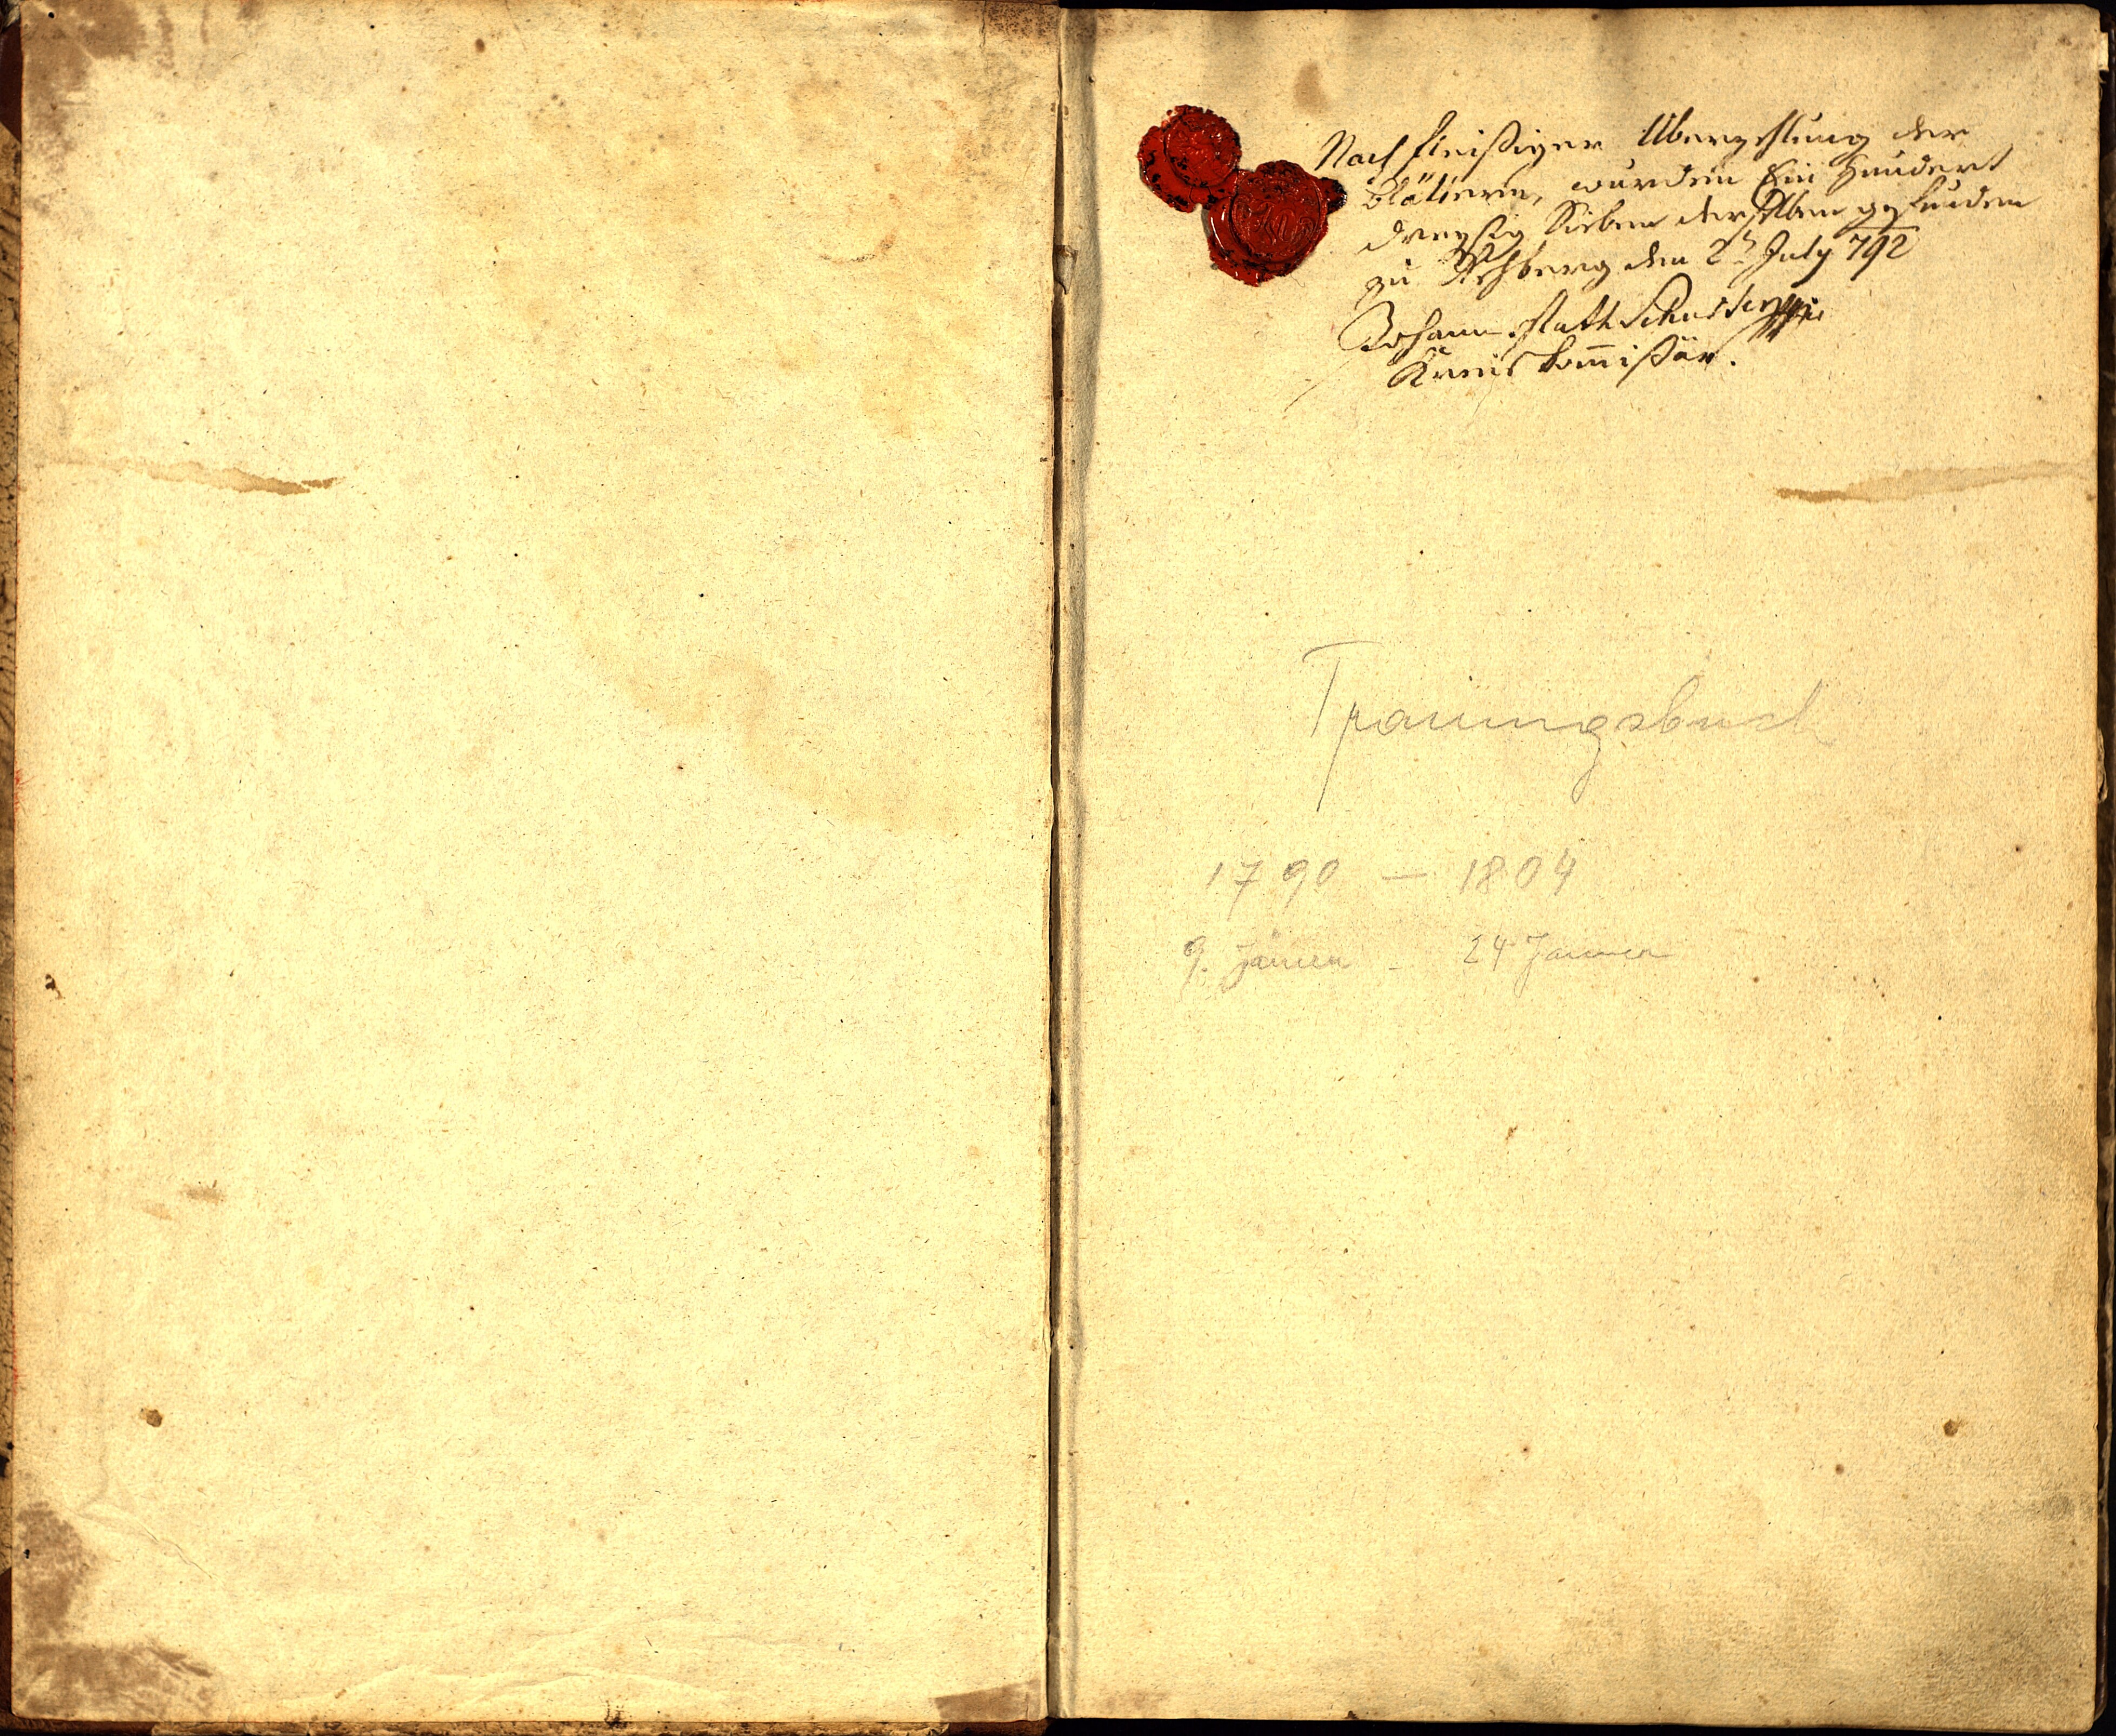 Nach fleißiger Uberzehlung der
Blättern, wurden Ein Hundert
dreyßig Sieben derselben gefunden
zu Rehberg den 2t July 792
Johann Math Schuster mpia
Kreis Kom̄ißär.
Trauungsbuch
1790 — 1804
9. Jänner - 24 Jänner